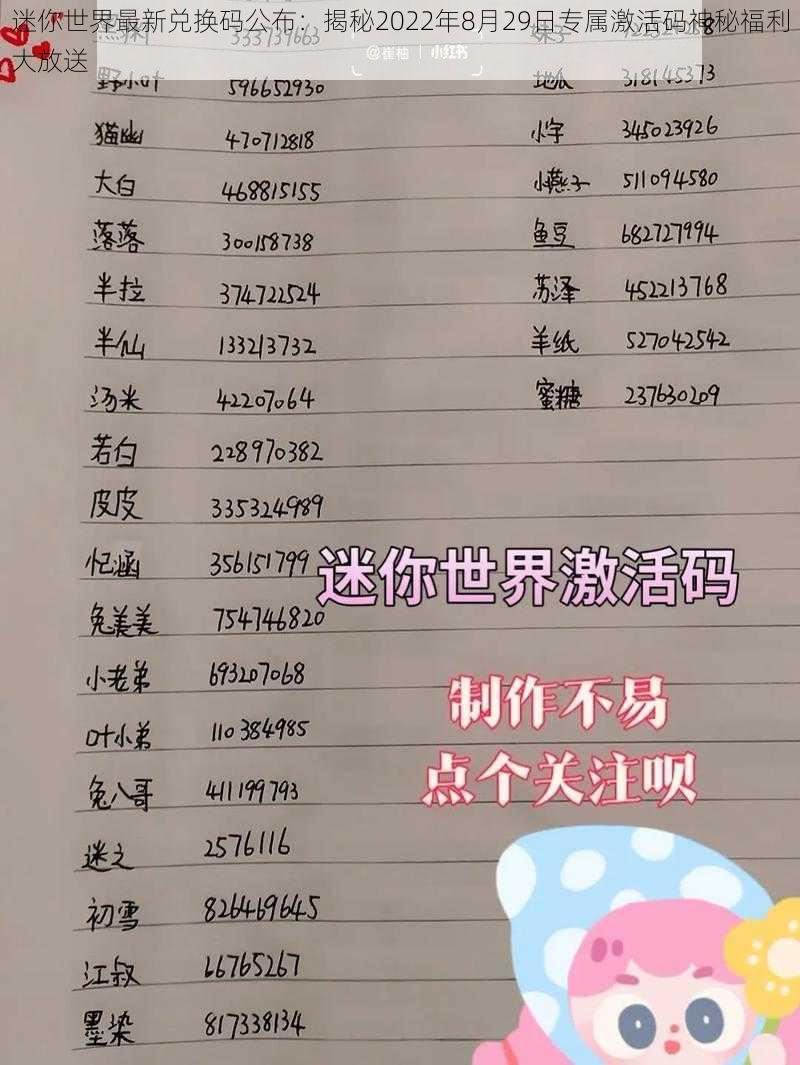 迷你世界最新兑换码公布：揭秘2022年8月29日专属激活码神秘福利
大放送
@崔柚 | 小红书
野小叶 596652930
猫幽 470712818
大白 468815155
落落 300158738
半拉 374722524
半仙 133213732
汤米 42207064
若白 228970382
皮皮 335324989
忆涵 356151799
兔美美 754746820
小老弟 693207068
叶小弟 110384985
兔八哥 411199793
迷之 2576116
初雪 826469645
江叔 66765267
墨染 817338134
地瓜 318145373
小字 345023926
小燕子 511094580
鱼豆 682727994
苏泽 452213768
羊纸 527042542
蜜糖 237630209
迷你世界激活码
制作不易
点个关注呗